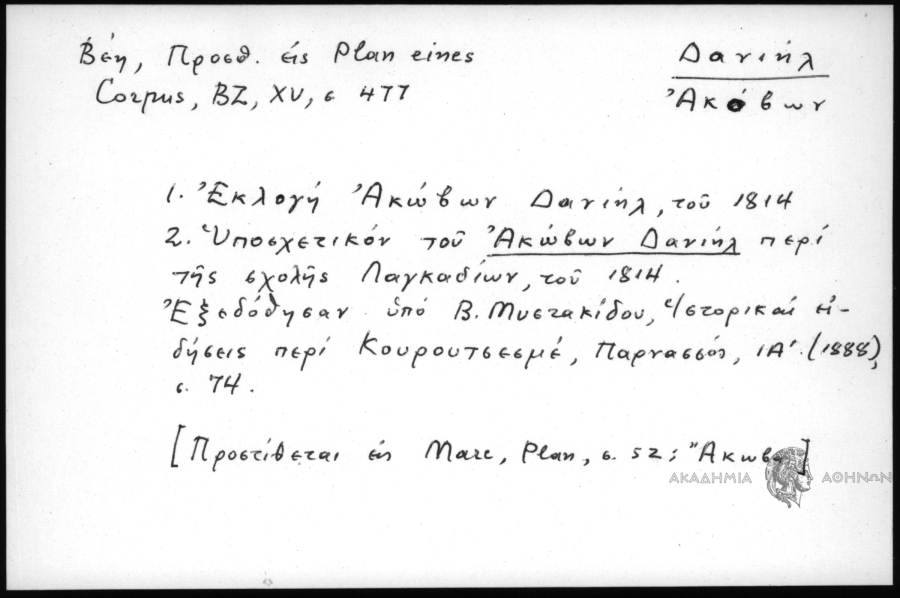 Βέη, Προσθ. εἰς Plan eines
Corpus, BZ, XV, σ 477
Δανιήλ
Ἀκώβων
1. Ἐκλογή Ἀκώβων Δανιήλ, τοῦ 1814
2. Ὑποσχετικόν τοῦ Ἀκώβων Δανιήλ περί
τῆς σχολῆς Λαγκαδίων, τοῦ 1814.
Ἐξεδόθησαν ὑπό Β. Μυστακίδου, Ἱστορικαί εἰ-
δήσεις περί Κουρουτσεσμέ, Παρνασσός, ΙΑ΄. (1888),
σ. 74.
[Προστίθεται εἰς Marc, Plan, σ. 52; "Ακωβα]
ΑΚΑΔΗΜΙΑ ΑΘΗΝΩΝ